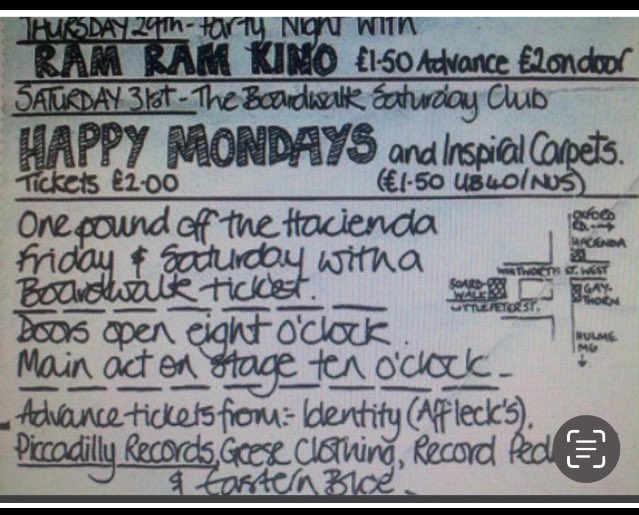 THURSDAY 29th - Party Night with
RAM RAM KINO £1·50 Advance £2 on door
SATURDAY 31st - The Boardwalk Saturday Club
HAPPY MONDAYS and Inspiral Carpets.
Tickets £2·00 (£1·50 UB40/NUS)
One pound off the Hacienda
Friday & Saturday with a
Boardwalk ticket.
Doors open eight o'clock.
Main act on stage ten o'clock -
Advance tickets from:- Identity (Affleck's).
Piccadilly Records, Geese Clothing, Record Ped
& Eastern Bloc.
OXFORD
RD. →
HACIENDA
WHITWORTH ST. WEST
BOARD-
WALK
GAY-
THORN
LITTLE PETER ST.
HULME
↓